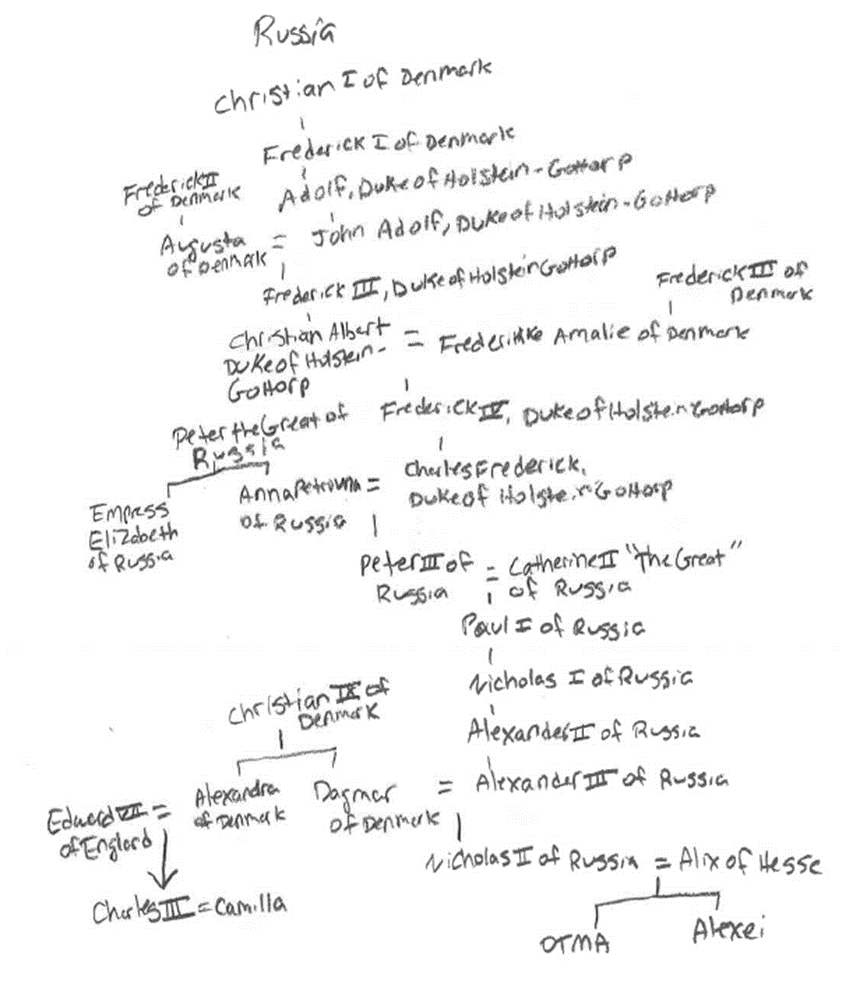 Russia
Christian I of Denmark
Frederick I of Denmark
Frederick II
of Denmark
Adolf, Duke of Holstein-Gottorp
Augusta
of Denmark
= John Adolf, Duke of Holstein-Gottorp
Frederick III, Duke of Holstein Gottorp
Frederick III of
Denmark
Christian Albert
Duke of Holstein-
Gottorp
= Frederikke Amalie of Denmark
Peter the Great of
Russia
Frederick IV, Duke of Holstein Gottorp
Empress
Elizabeth
of Russia
Anna Petrovna =
of Russia
Charles Frederick,
Duke of Holstein Gottorp
Peter III of
Russia
= Catherine II "The Great"
of Russia
Paul I of Russia
Nicholas I of Russia
Christian IX of
Denmark
Alexander II of Russia
Edward VII =
of England
Alexandra
of Denmark
Dagmar
of Denmark
= Alexander III of Russia
Nicholas II of Russia = Alix of Hesse
Charles III = Camilla
OTMA
Alexei